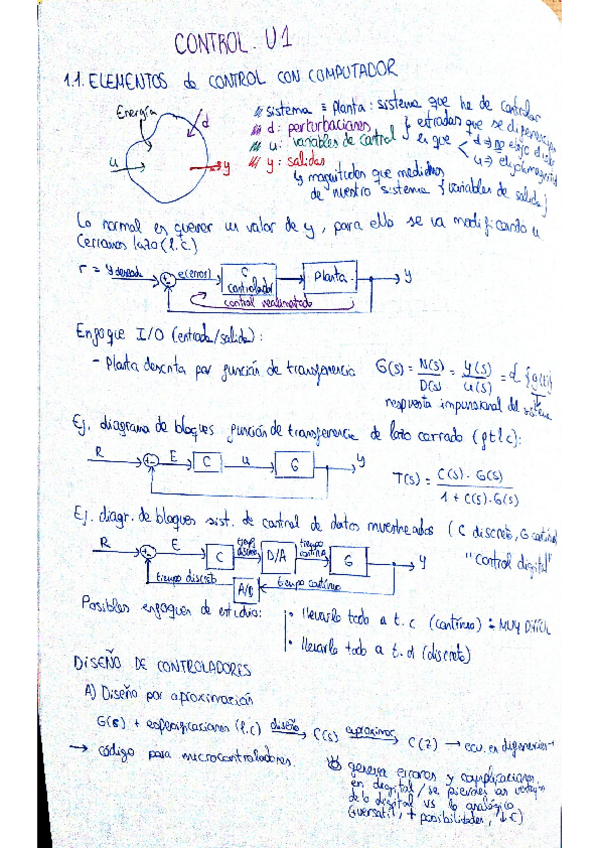 CONTROL. U1
1.1. ELEMENTOS de CONTROL CON COMPUTADOR
Energía
d
u
y
// sistema ≡ planta: sistema que he de controlar
// d: perturbaciones
// u: variables de control
} entradas que se
en que < d → no elijo
u →
// y: salidas
↳ magnitudes que medimos
de nuestro sistema {variables de salida}
Lo normal es querer un valor de y, para ello se va modificando u
Cerramos lazo (l.c.)
r = y deseada
+
-
e(error)
C
controlador
Planta
y
control realimentado
Enfoque I/O (entrada/salida):
- Planta descrita por función de transferencia G(s) = N(s)/D(s) = y(s)/u(s) = L{g(t)}
respuesta impulsional del sistema
Ej. diagrama de bloques función de transferencia de lazo cerrado (ftlc):
R
+
-
E
C
u
G
y
T(s) = C(s)·G(s) / 1 + C(s)·G(s)
Ej. diagr. de bloques sist. de control de datos muestreados (C discreto, G continuo)
"control digital"
R
+
-
E
C
tiempo discreto
D/A
tiempo continuo
G
y
tiempo discreto
A/D
tiempo continuo
Posibles enfoques de estudio:
• llevarlo todo a t. c (continuo) : MUY DIFÍCIL
• llevarlo todo a t. d (discreto)
DISEÑO DE CONTROLADORES
A) Diseño por aproximación
G(s) + especificaciones (l.c) diseño → C(s) aproximamos → C(z) → ecu. en diferencias →
→ código para microcontroladores.
↳ genera errores y complicaciones
en digital / se pierden las ventajas
de lo digital vs lo analógico
(versátil, + posibilidades, ↓ C)